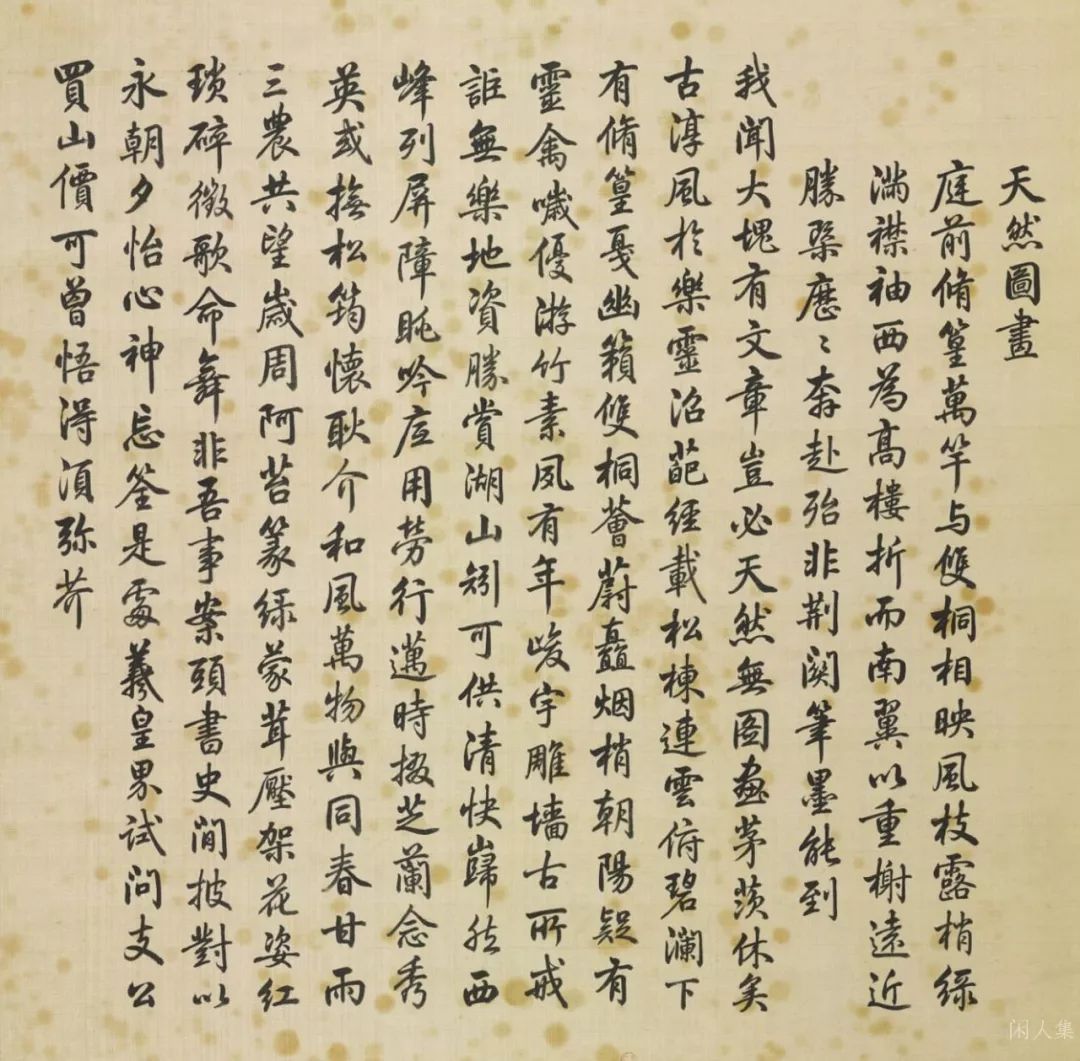 天然圖畫
庭前脩篁萬竿与雙桐相映風枝露梢綠
滿襟袖西為高樓折而南翼以重榭遠近
勝槩歷〻奔赴殆非荆關筆墨能到
我聞大塊有文章豈必天然無图畫茅茨休矣
古淳風於樂靈沼葩經載松棟連雲俯碧瀾下
有脩篁戛幽籟雙桐薈蔚矗烟梢朝陽疑有
靈禽噦優游竹素夙有年峻宇雕墻古所戒
詎無樂地資勝賞湖山矧可供清快巋然西
峰列屏障眺吟底用勞行邁時掇芝蘭念秀
英或撫松筠懷耿介和風萬物與同春甘雨
三農共望歲周阿苔篆綠蒙茸壓架花姿紅
瑣碎徵歌命舞非吾事案頭書史閒披對以
永朝夕怡心神忘筌是處羲皇界試问支公
買山價可曾悟得須弥芥
闲人集